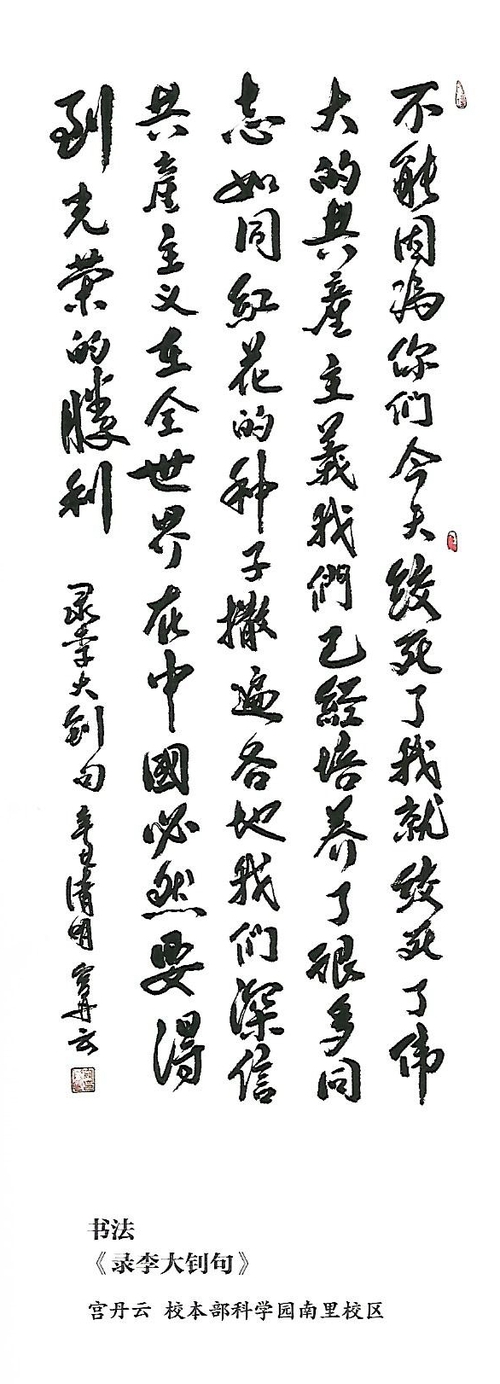 不能因为你们今天绞死了我就绞死了伟
大的共產主義我們已經培养了很多同
志如同紅花的种子撒遍各地我们深信
共產主义在全世界在中國必然要得
到光荣的勝利
录李大釗句 辛丑清明 宫丹云
书法
《录李大钊句》
宫丹云 校本部科学园南里校区